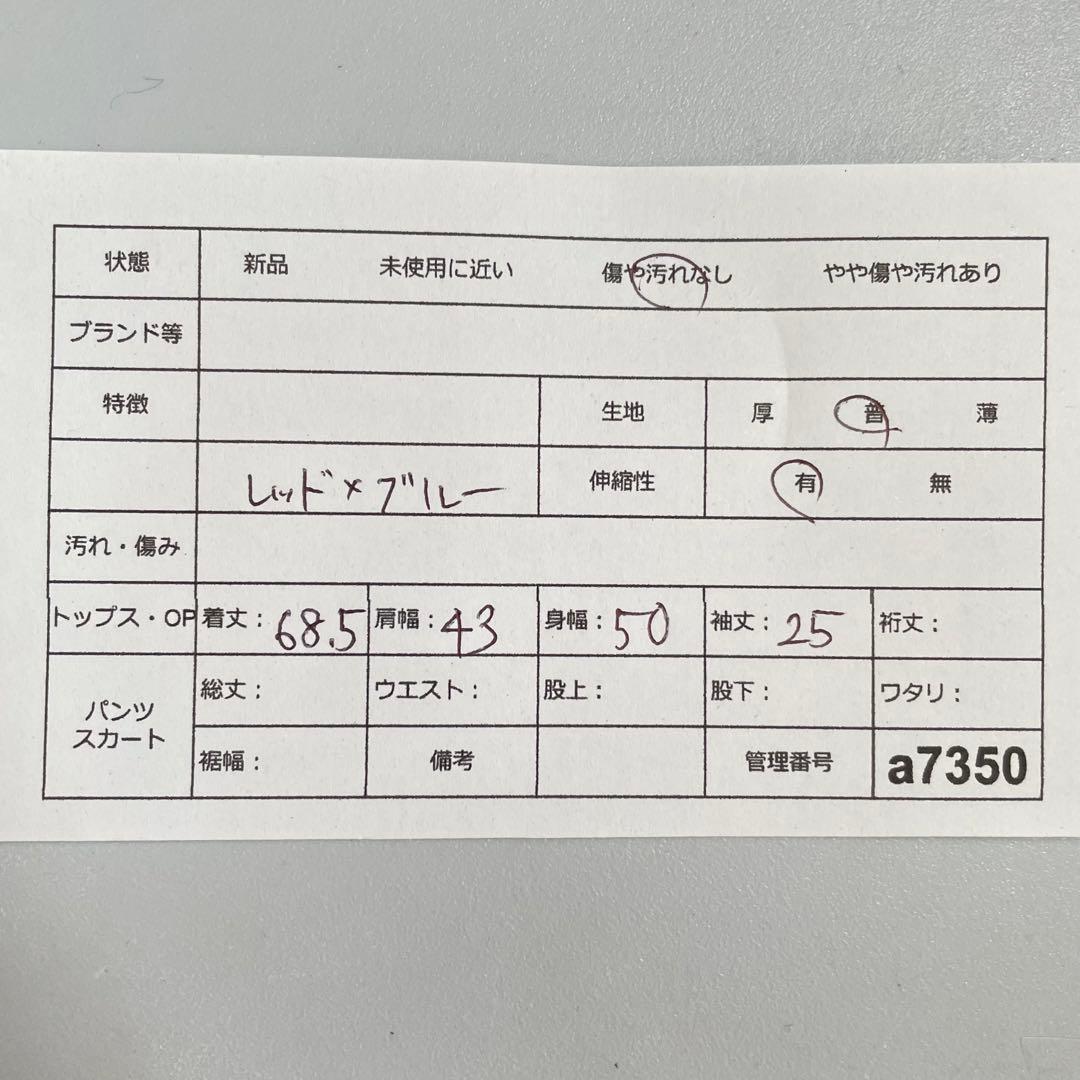 状態 新品 未使用に近い 傷や汚れなし やや傷や汚れあり
ブランド等
特徴 生地 厚 普 薄
レッド×ブルー 伸縮性 有 無
汚れ・傷み
トップス・OP 着丈： 68.5 肩幅： 43 身幅： 50 袖丈： 25 裄丈：
パンツ スカート 総丈： ウエスト： 股上： 股下： ワタリ：
裾幅： 備考 管理番号 a7350